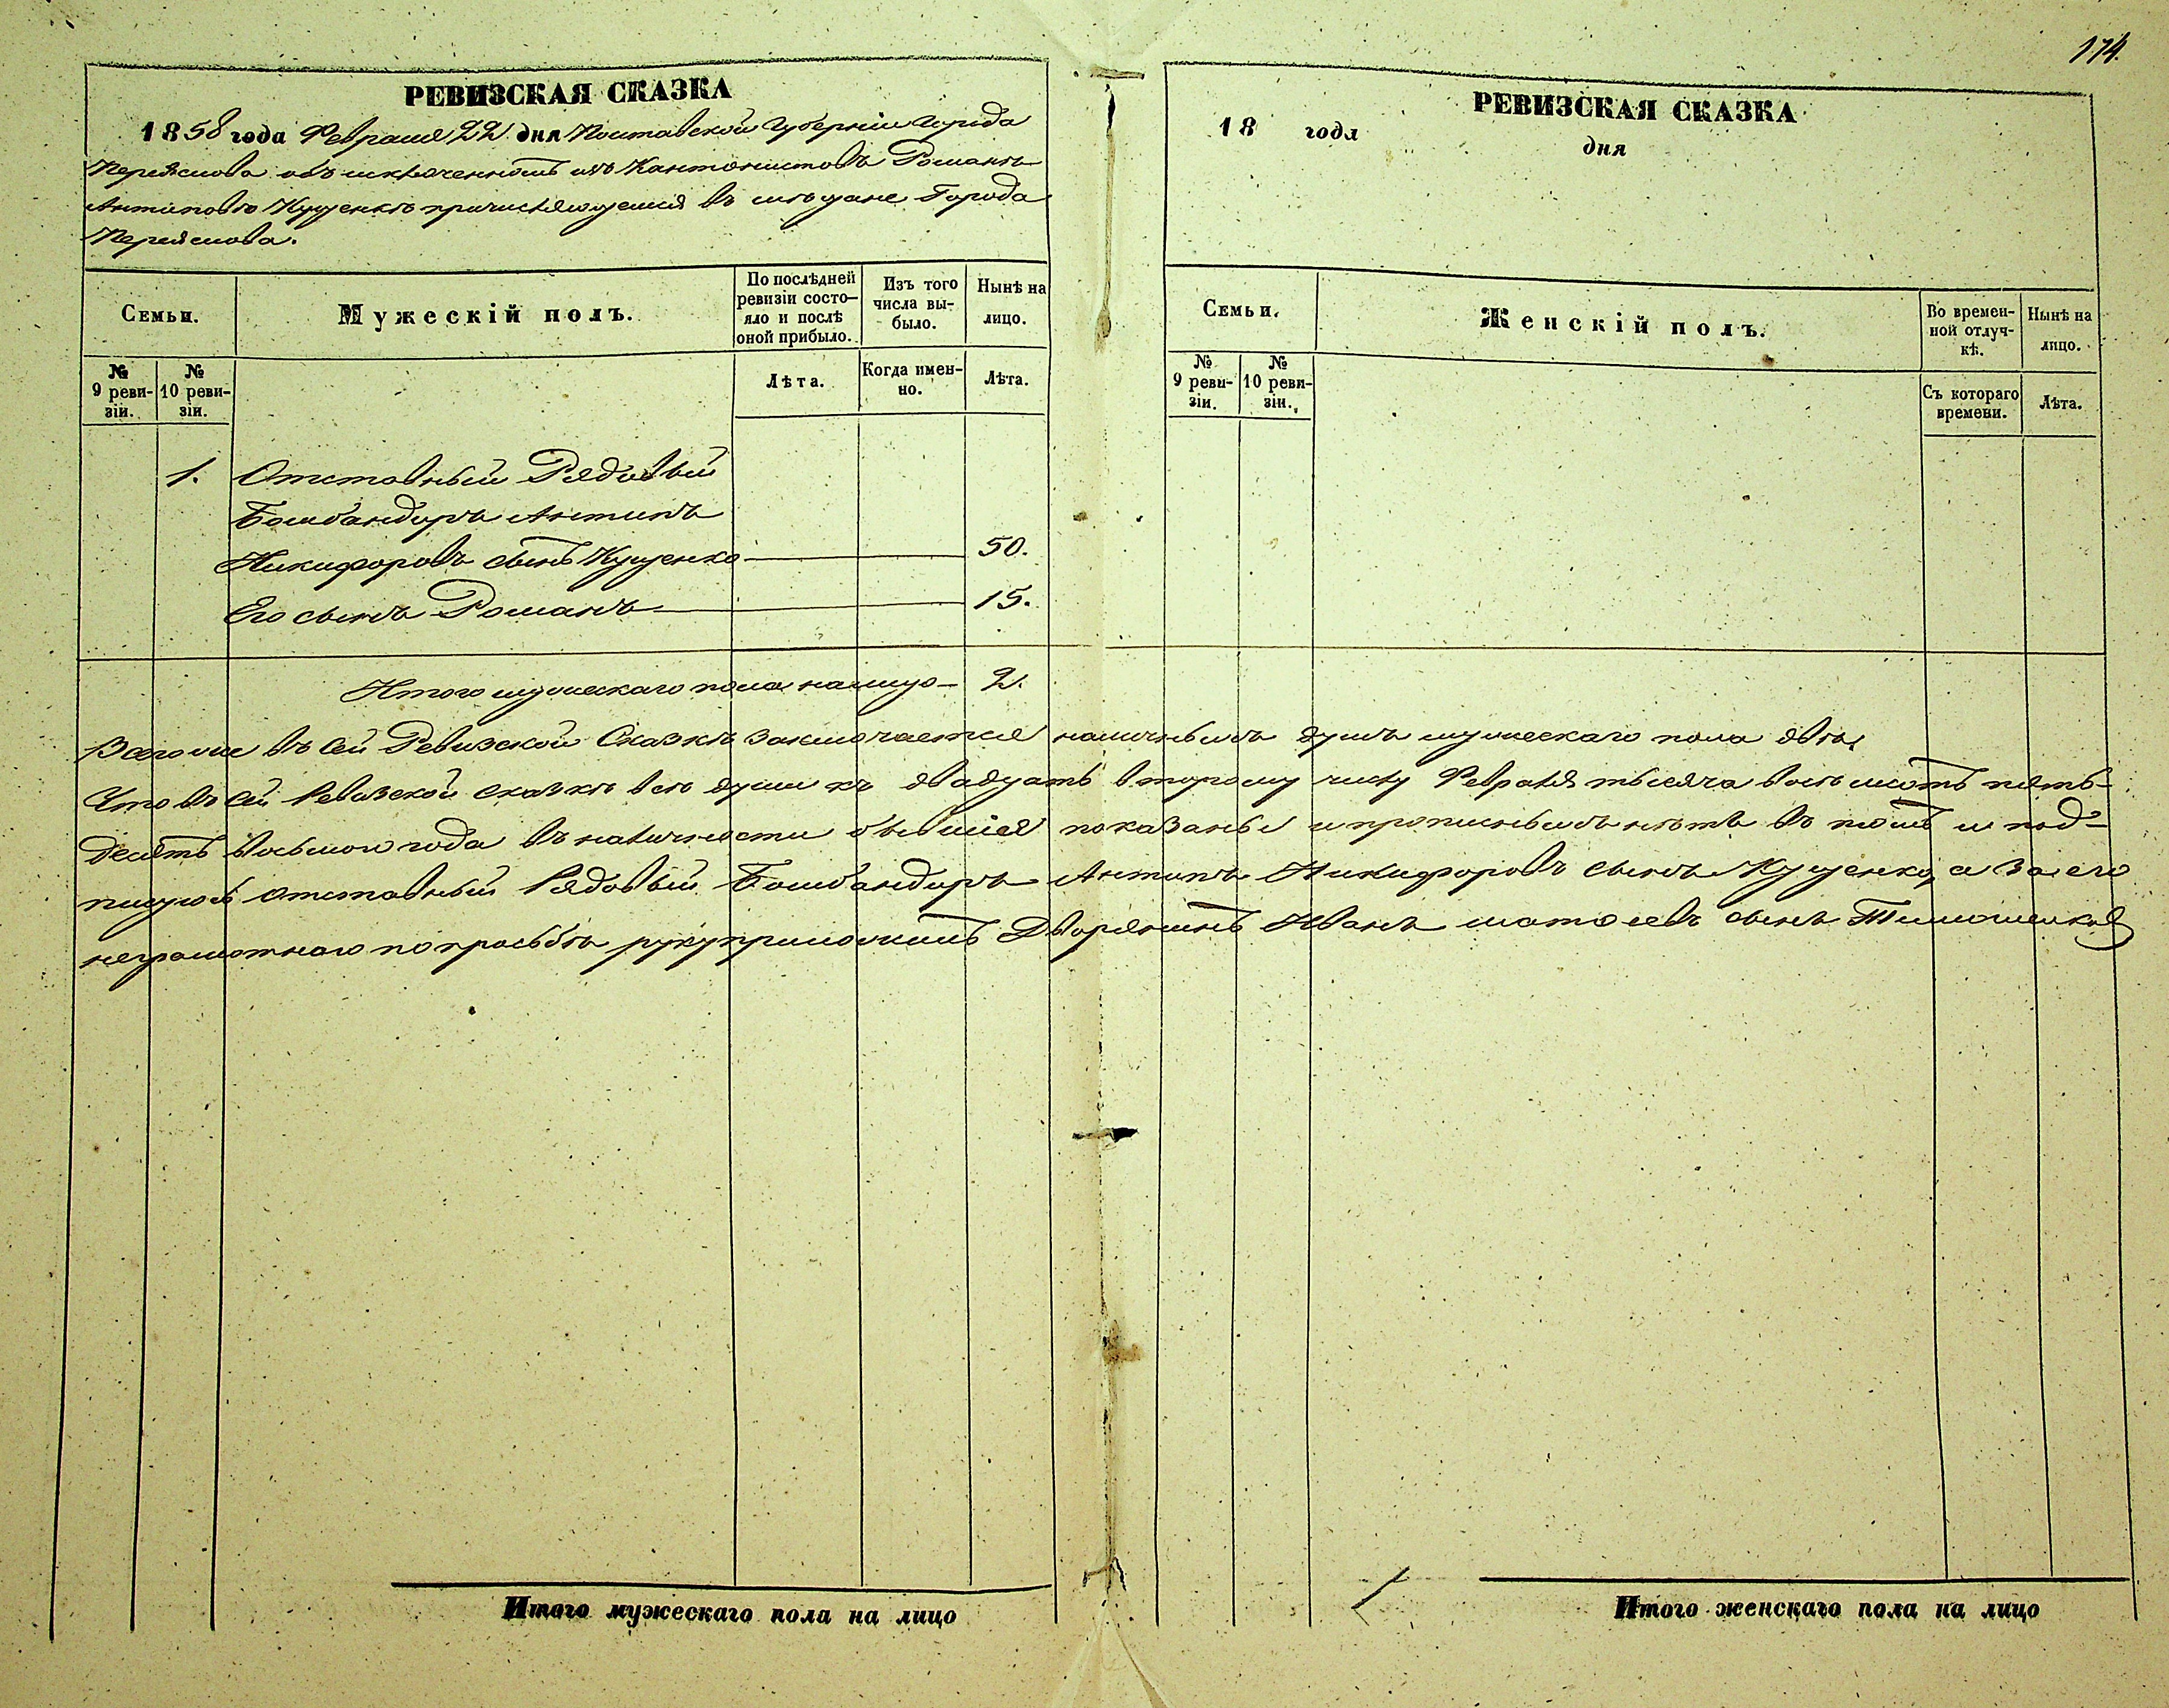 174.
РЕВИЗСКАЯ СКАЗКА
1858 года Февраля 22 дня Полтавской Губерніи Города
Переяслова объ исключенномъ изъ Кантонистовъ Романѣ
Антиповѣ Куценкѣ причисляющемся въ мѣщане Города
Переяслова.
Семьи.
Мужескій полъ.
По послѣдней
ревизіи состо-
яло и послѣ
оной прибыло.
Изъ того
числа вы-
было.
Нынѣ на
лицо.
№
9 реви-
зіи.
№
10 реви-
зіи.
Лѣта.
Когда имен-
но.
Лѣта.
1. Отставный Рядовый
Бомбандиръ Антипъ
Никифоровъ сынъ Куценко 50.
Его сынъ Романъ 15.
Итого мужескаго пола налицо 2.
РЕВИЗСКАЯ СКАЗКА
18 года
дня
Семьи.
Женскій полъ.
Во времен-
ной отлуч-
кѣ.
Нынѣ на
лицо.
№
9 реви-
зіи.
№
10 реви-
зіи.
Съ котораго
времени.
Лѣта.
Всего же въ сей Ревизской Сказкѣ заключается наличныхъ душъ мужескаго пола двѣ,
Что въ сей Ревизской сказкѣ всѣ души къ двадцать второму числу Февраля тысяча восемьсотъ пять-
десятъ восьмого года въ наличности бывшія показаны и прописныхъ нѣтъ въ томъ и под-
пишусь отставный Рядовый Бомбандиръ Антипъ Никифоровъ сынъ Куценко, а за его
неграмотнаго по просьбѣ руку приложилъ Дворянинъ Иванъ сынъ Тимошенко
Итого мужескаго пола на лицо
Итого женскаго пола на лицо